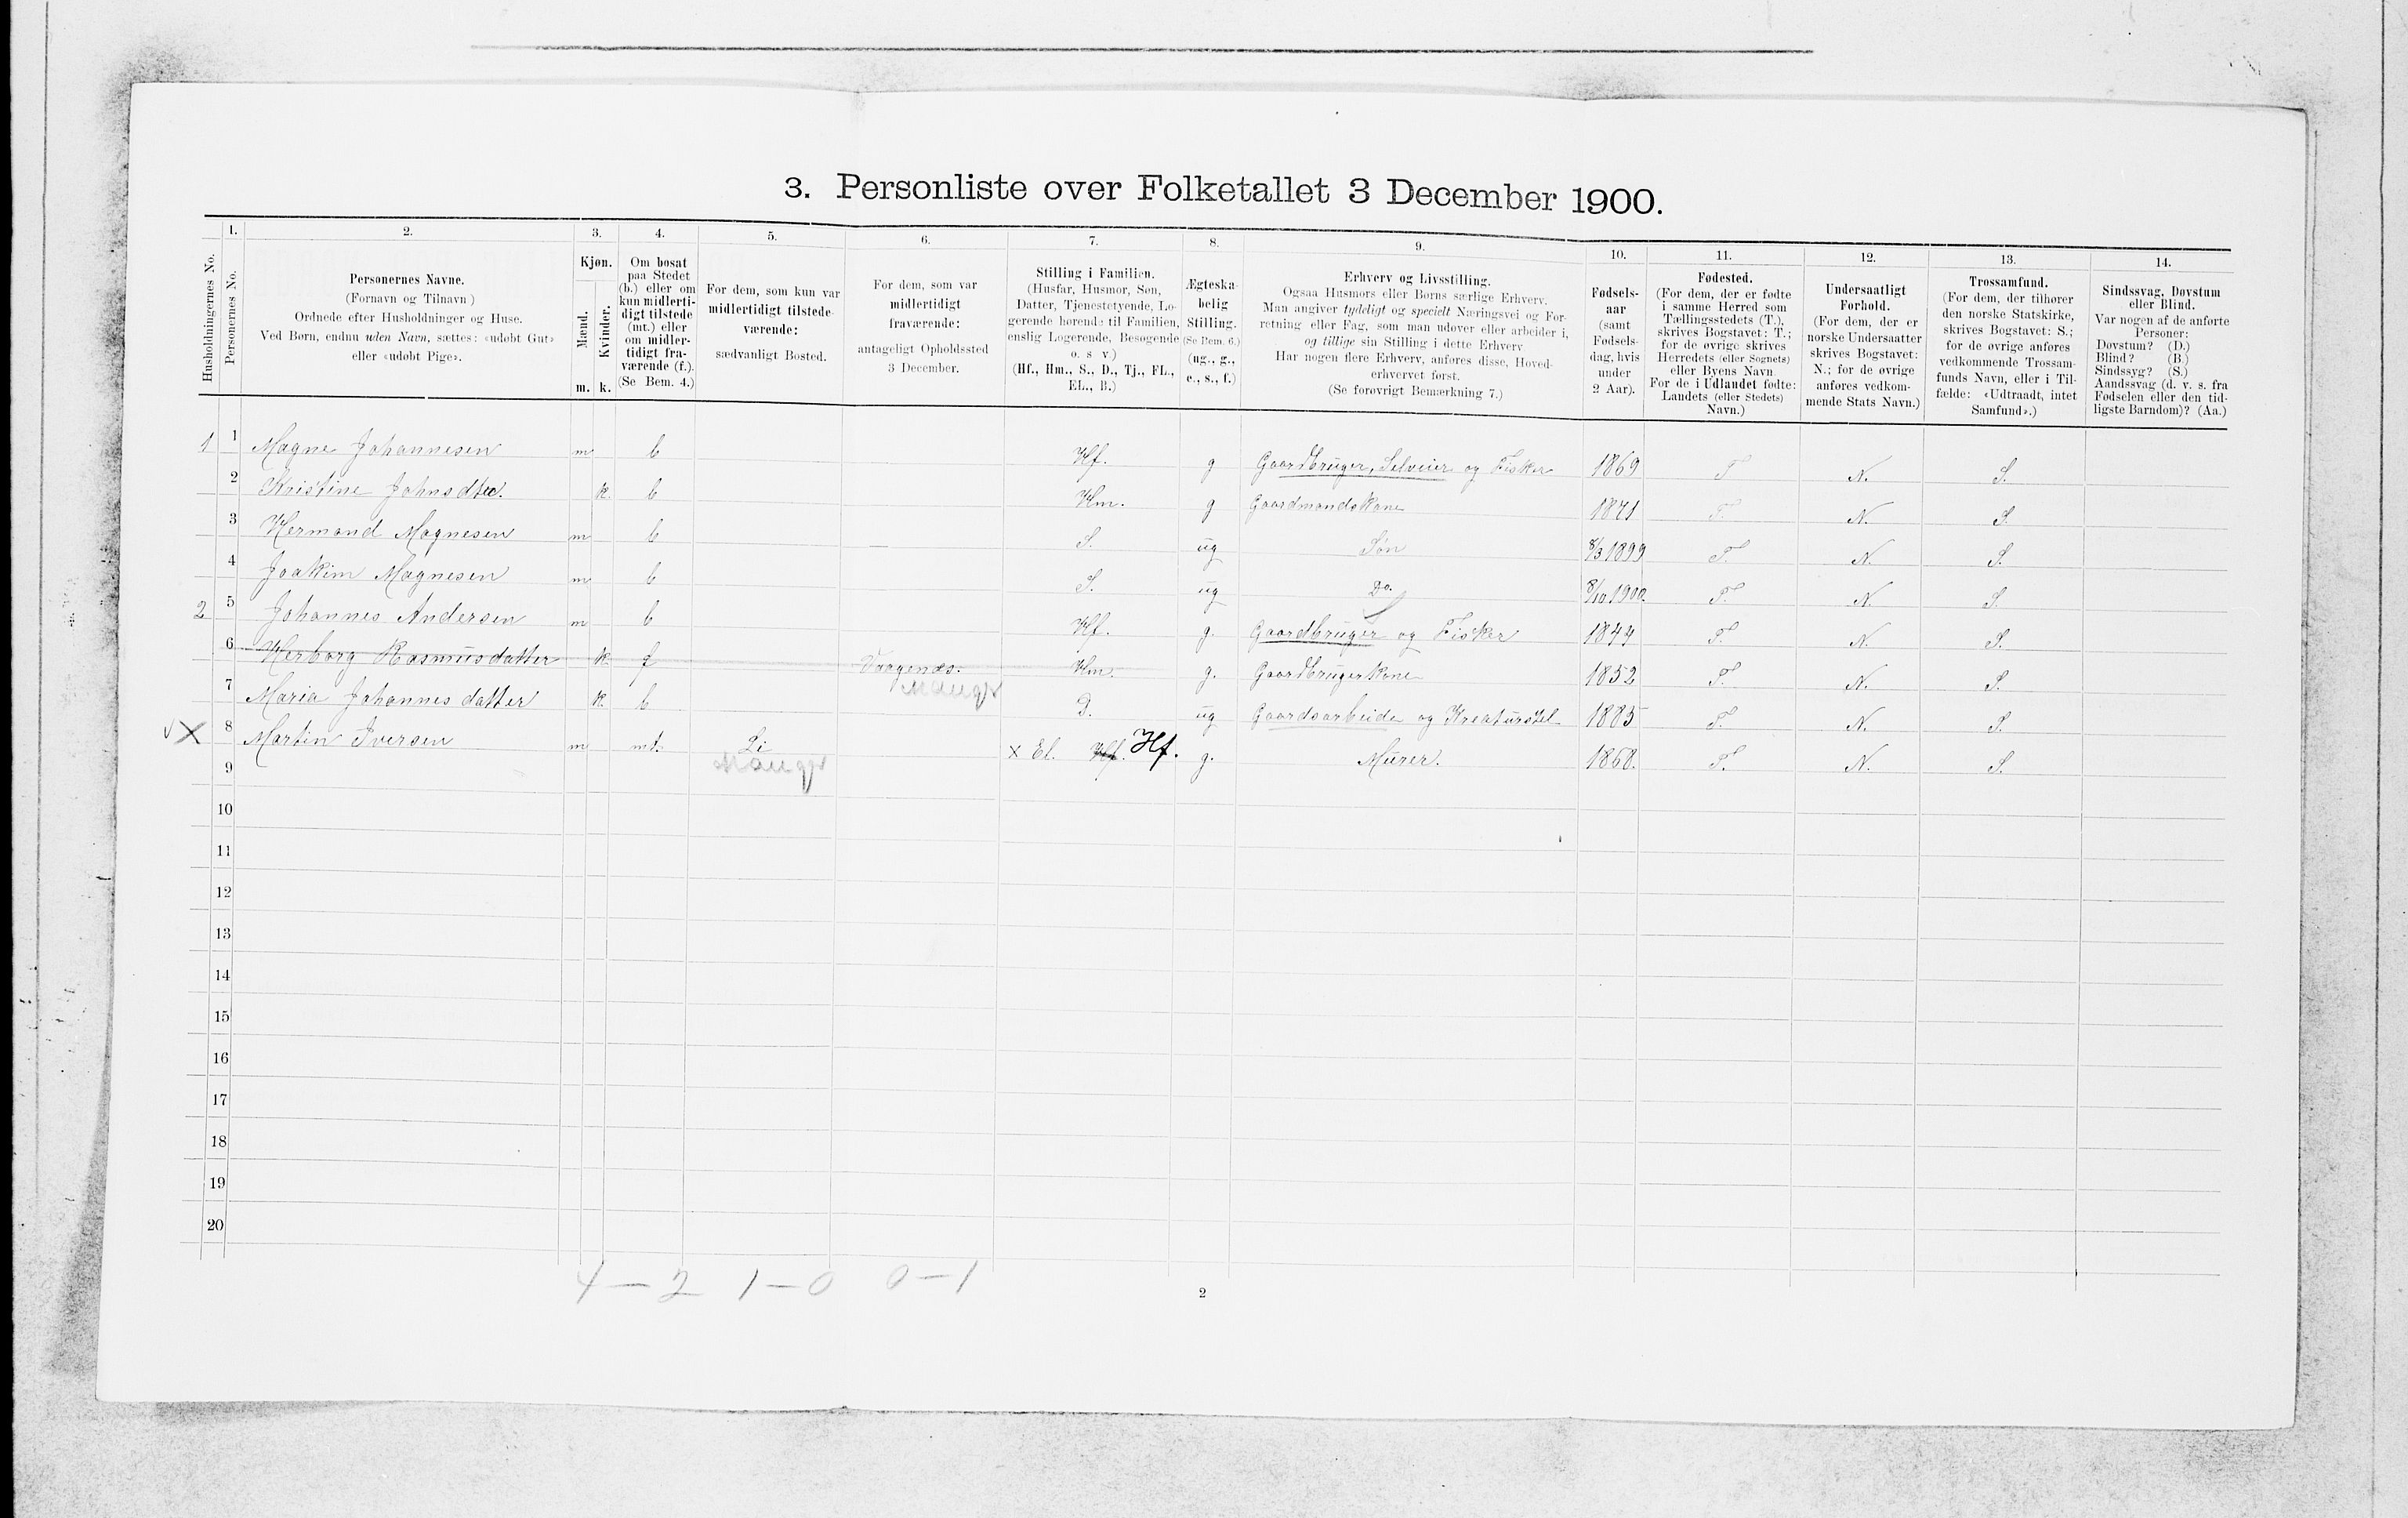 3. Personliste over Folketallet 3 December 1900.
1. 2. 3. 4. 5. 6. 7. 8. 9. 10. 11. 12. 13. 14.
Husholdningernes No.
Personernes No.
Personernes Navne.
(Fornavn og Tilnavn)
Ordnede efter Husholdninger og Huse.
Ved Børn, endnu uden Navn, sættes: «udøbt Gut»
eller «udøbt Pige».
Kjøn.
Mænd.
Kvinder.
m. k.
Om bosat
paa Stedet
(b.) eller om
kun midlerti-
digt tilstede
(mt.) eller
om midler-
tidigt fra-
værende (f.).
(Se Bem. 4.)
For dem, som kun var
midlertidigt tilstede-
værende:
sædvanligt Bosted.
For dem, som var
midlertidigt
fraværende:
antageligt Opholdssted
3 December.
Stilling i Familien.
(Husfar, Husmor, Søn,
Datter, Tjenestetyende, Lo-
gerende hørende til Familien,
enslig Logerende, Besøgende
o. s v.)
(Hf., Hm., S., D., Tj., FL.,
EL., B.)
Ægteska-
belig
Stilling.
(Se Bem. 6.)
(ug., g.,
e., s., f.)
Erhverv og Livsstilling.
Ogsaa Husmors eller Børns særlige Erhverv.
Man angiver tydeligt og specielt Næringsvei og For-
retning eller Fag, som man udøver eller arbeider i,
og tillige sin Stilling i dette Erhverv
Har nogen flere Erhverv, anføres disse, Hoved-
erhvervet først.
(Se forøvrigt Bemærkning 7.)
Fødsels-
aar
(samt
Fødsels-
dag, hvis
under
2 Aar).
Fødested.
(For dem, der er fødte
i samme Herred som
Tællingsstedets (T.),
skrives Bogstavet: T.;
for de øvrige skrives
Herredets (eller Sognets)
eller Byens Navn.
For de i Udlandet fødte:
Landets (eller Stedets)
Navn.)
Undersaatligt
Forhold.
(For dem, der er
norske Undersaatter
skrives Bogstavet:
N.; for de øvrige
anføres vedkom-
mende Stats Navn.)
Trossamfund.
(For dem, der tilhører
den norske Statskirke,
skrives Bogstavet: S.;
for de øvrige anføres
vedkommende Trossam-
funds Navn, eller i Til-
fælde: «Udtraadt, intet
Samfund».)
Sindssvag, Døvstum
eller Blind.
Var nogen af de anførte
Personer:
Døvstum? (D.)
Blind? (B.)
Sindssyg? (S.)
Aandssvag (d. v. s. fra
Fødselen eller den tid-
ligste Barndom)? (Aa.)
1 1 Magne Johannesen m b Hf. g Gaardbruger, Selveier og Fisker 1869 T N. S.
2 Kristine Johnsdtr. k. b Hm. g Gaardmandskone 1871 T N. S.
3 Hermand Magnesen m b S. ug Søn 8/3 1899 T. N. S.
4 Joakim Magnesen m b S. ug Do. 8/10 1900. T. N. S.
2 5 Johannes Andersen m b Hf. g. Gaardbruger og Fisker 1844 T. N. S.
6 Herborg Rasmusdatter k. f Vaagenæs. Hm. g. Gaardbrugerkone 1852 T. N. S.
Manger
7 Maria Johannesdatter k. b D. ug Gaardsarbeide og Kreaturstel 1885 T. N. S.
X 8 Martin Iversen m mt. Li x El. Hf. Hf. g. Murer. 1868. T. N. S.
Manger
9
10
11
12
13
14
15
16
17
18
19
20
4 — 2 1 — 0 0 — 1
2